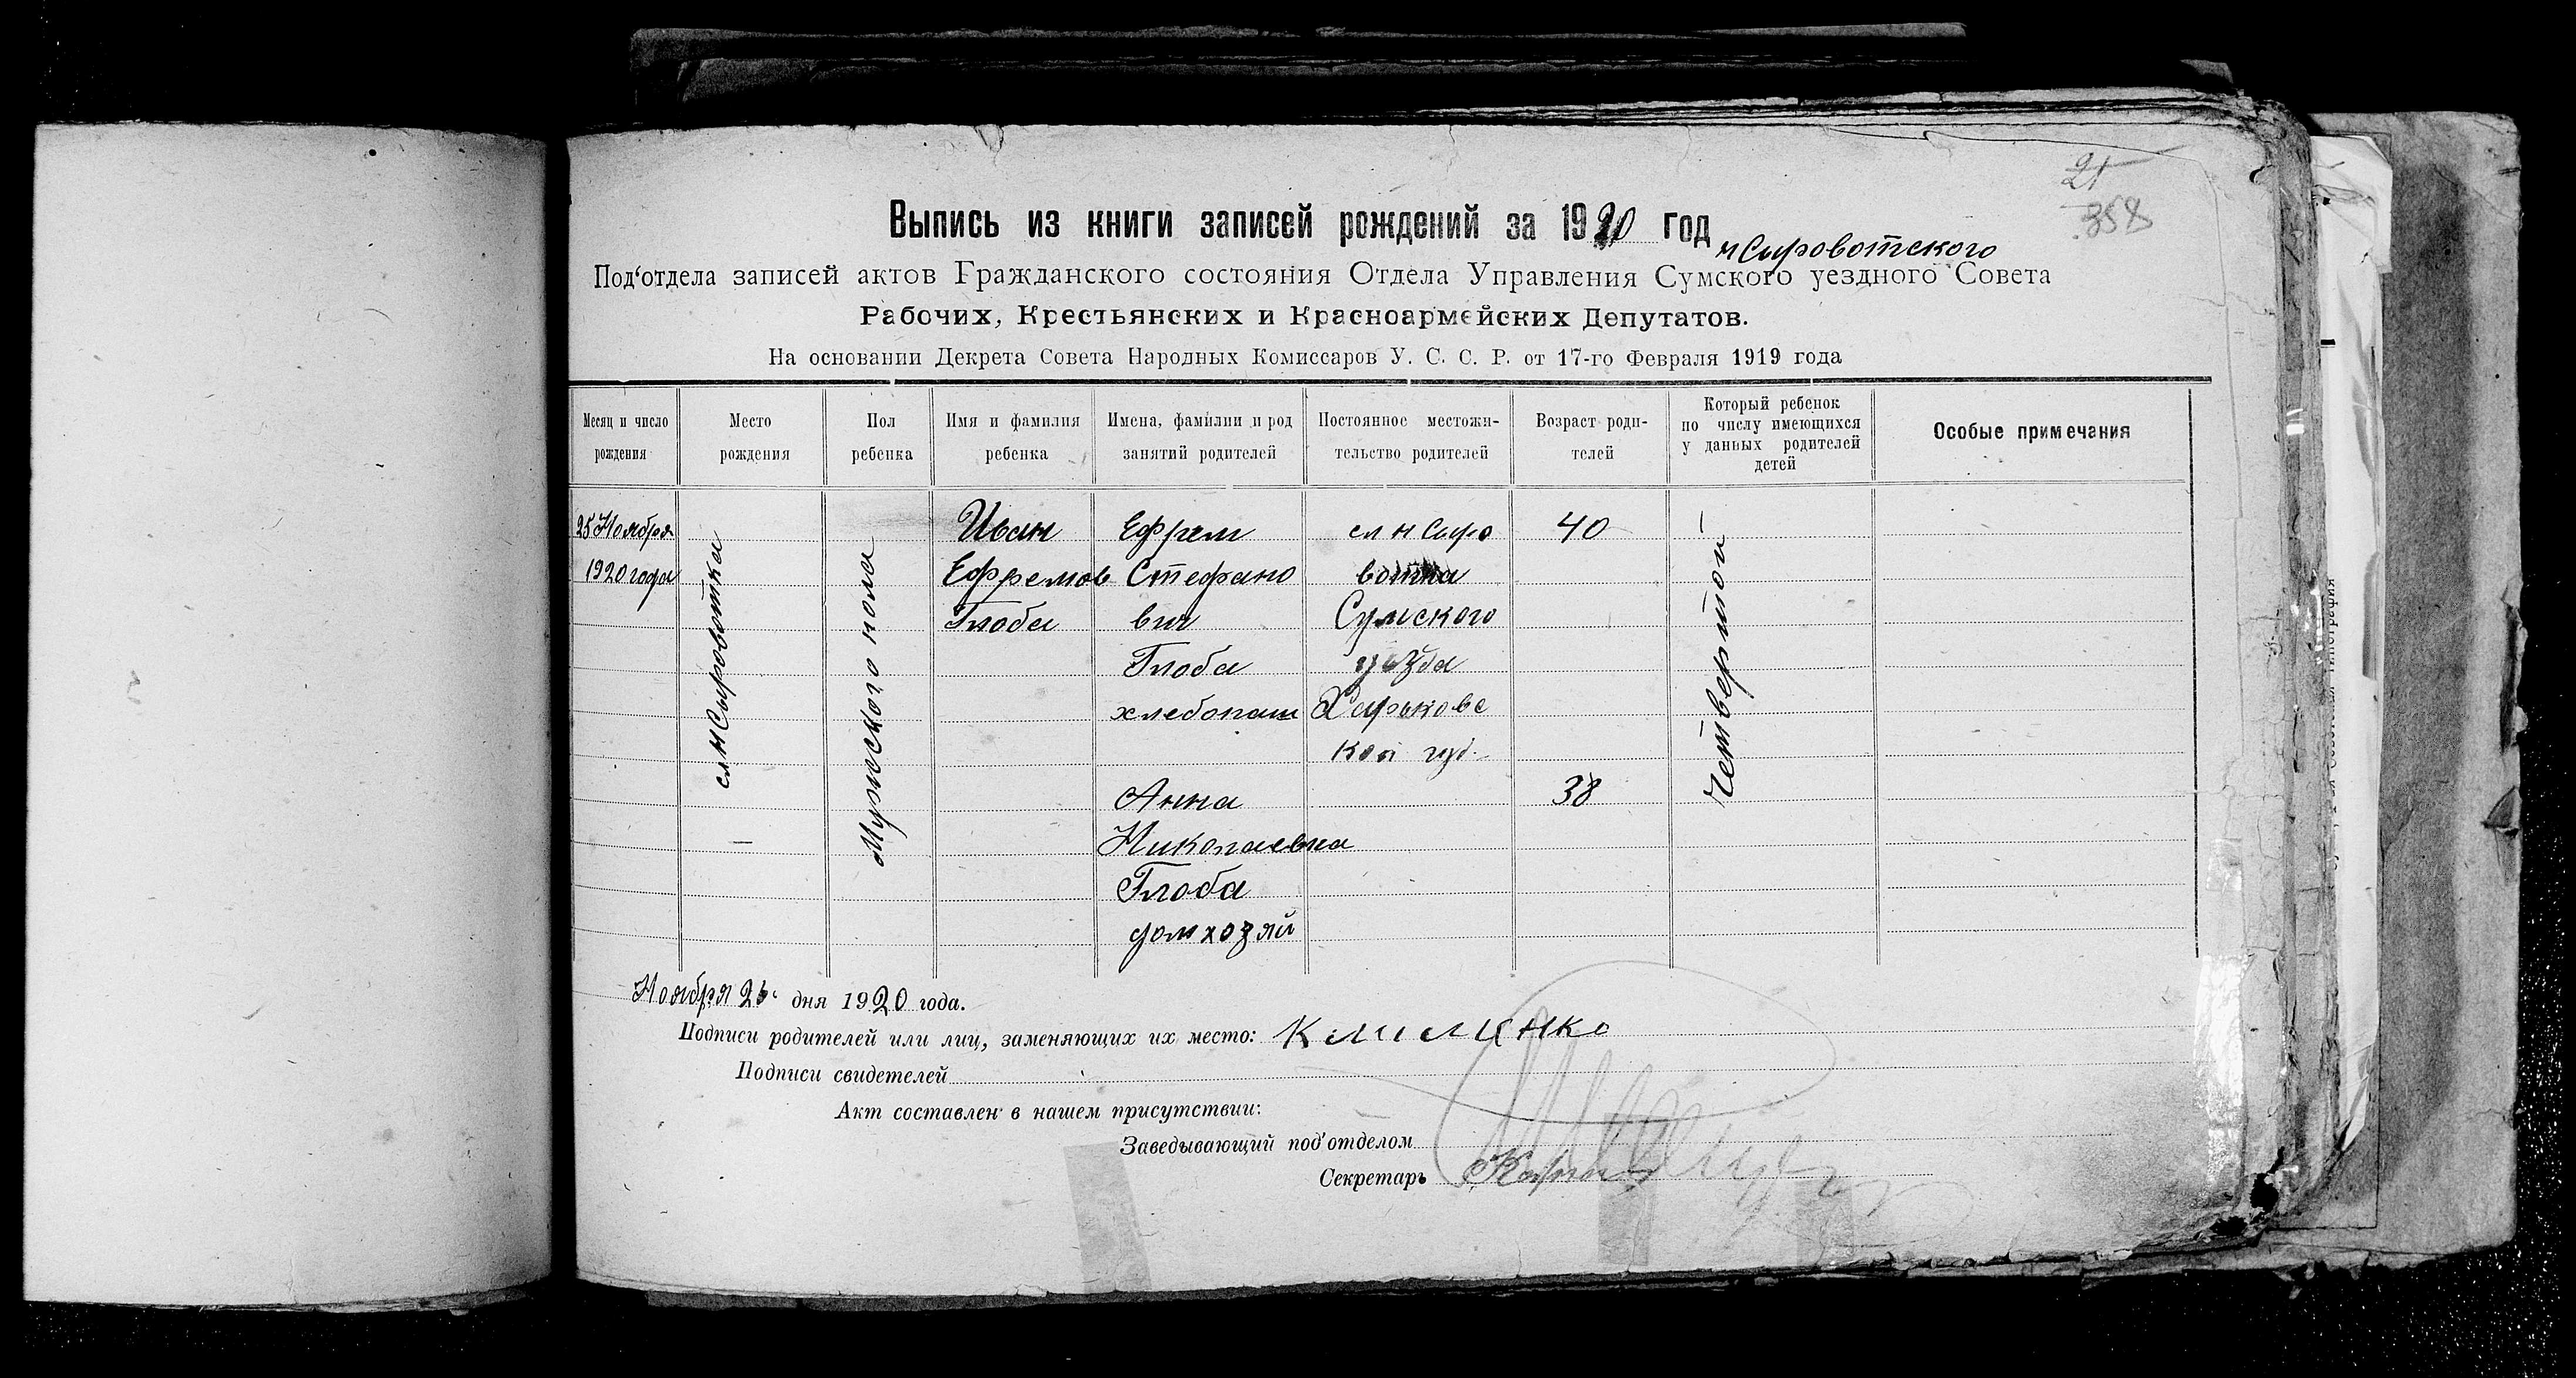 21
358
Выпись из книги записей рождений за 1920 год
н Сыровотского
Под'отдела записей актов Гражданского состояния Отдела Управления Сумского уездного Совета
Рабочих, Крестьянских и Красноармейских Депутатов.
На основании Декрета Совета Народных Комиссаров У. С. С. Р. от 17-го Февраля 1919 года
Месяц и число рождения
Место рождения
Пол ребенка
Имя и фамилия ребенка
Имена, фамилии и род занятий родителей
Постоянное местожительство родителей
Возраст родителей
Который ребенок по числу имеющихся у данных родителей детей
Особые примечания
25 Ноября
1920 года
сл Н Сыровотка
Мужского пола
Иван
Ефремов
Глоба
Ефрем
Стефано
вич
Глоба
хлебопаш
Анна
Николаевна
Глоба
домхозяй
сл н Сыро
вотка
Сумского
уезда
Харьковс
кой губ.
40
38
Четвертой
Ноября 25 дня 1920 года.
Подписи родителей или лиц, заменяющих их место: Клименко
Подписи свидетелей
Акт составлен в нашем присутствии:
Заведывающий под'отделом
Секретарь